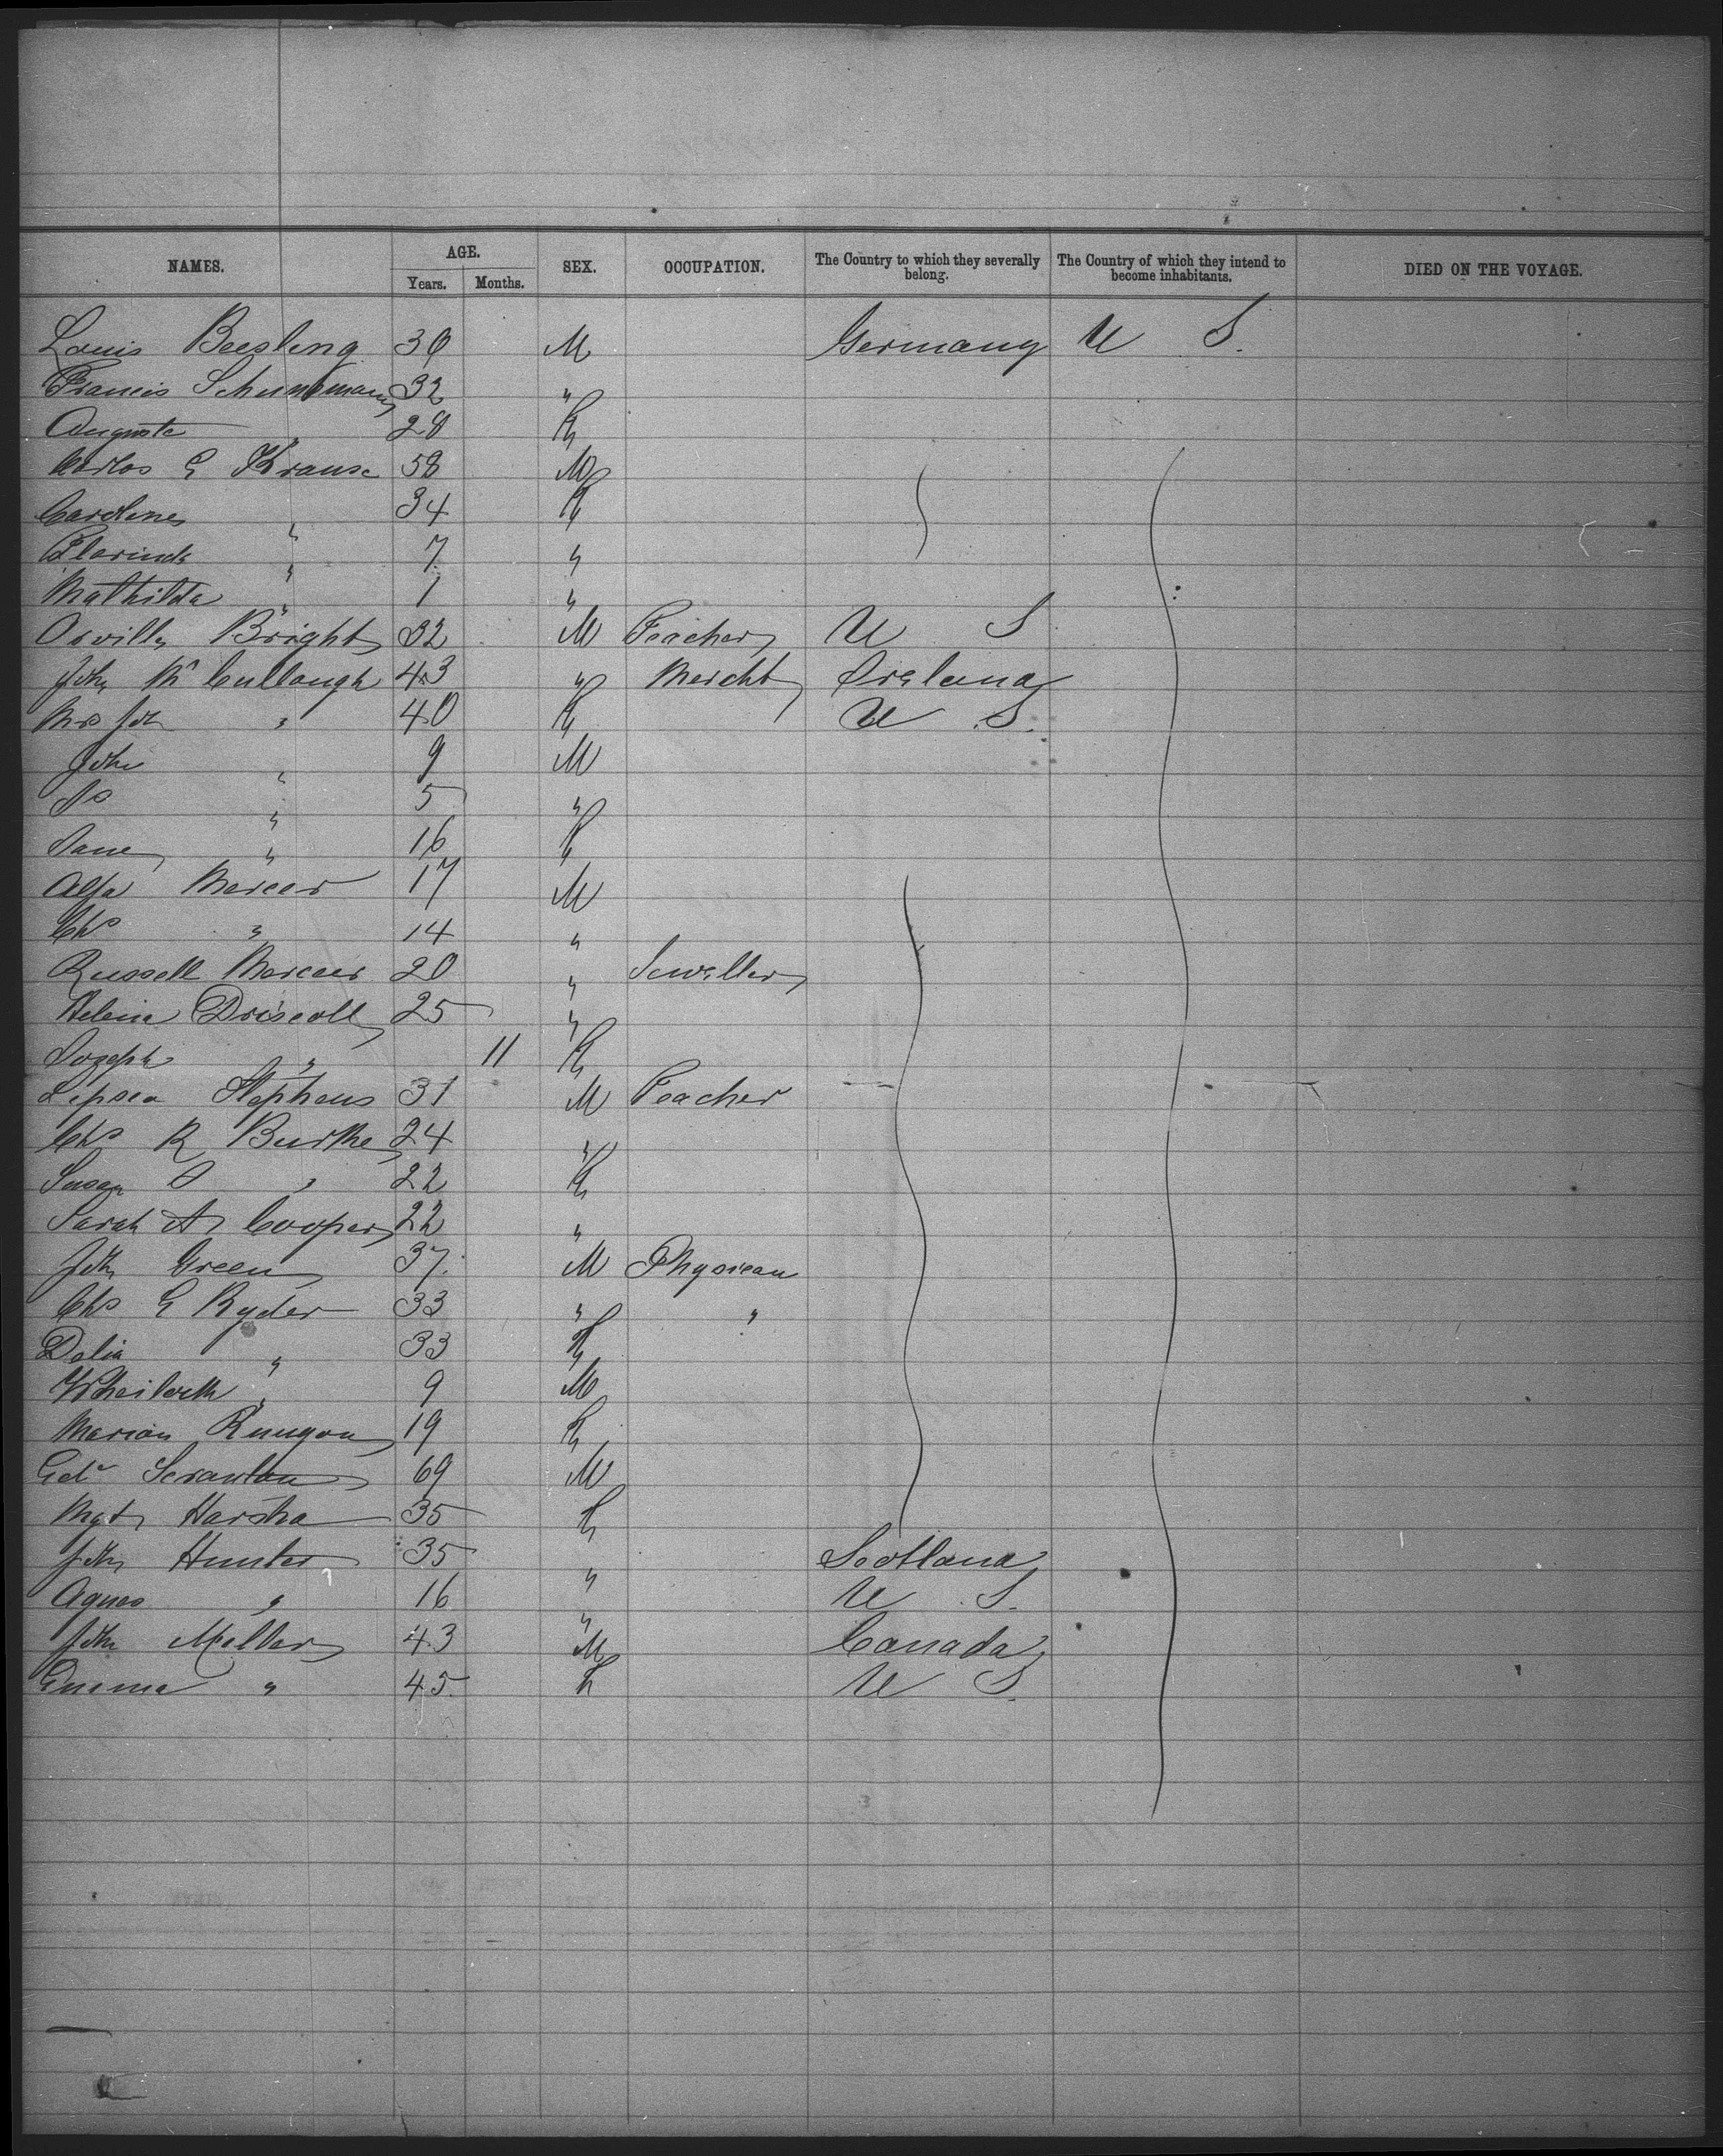 NAMES. AGE. SEX. OCCUPATION. The Country to which they severally belong. The Country of which they intend to become inhabitants. DIED ON THE VOYAGE.
Years. Months.
Louis Beesling 30 M Germany U S.
Francis Schunemann 32 "
Auguste " 28 F
Carlos G Krause 58 M
Caroline " 34 F
Clarinda " 7 "
Mathilda " 1 "
Orville Bright 32 M Teacher U S
John Mc Cullough 43 " Mercht Ireland
Mrs Jn " 40 F U S.
John " 9 M
Js " 5 "
Jane " 16 F
Alfd Mercer 17 M
Chs " 14 "
Russell Mercer 20 " Jeweller
Helena Driscoll 25 "
Joseph " 11 F
Stephens 31 M Teacher
Chs R Burke 24 "
Susan S " 22 F
Sarah A Cooper 22 "
John Green 37 M Physican
Chs G Ryder 33 " "
Delia " 33 F
" 9 M
Marion Runyon 19 F
Scranton 69 M
Mgt Harsha 35 F
Jn Hunter 35 " Scotland
Agnes " 16 " U S.
John Miller 43 M Canada
Emma " 45 F U S.